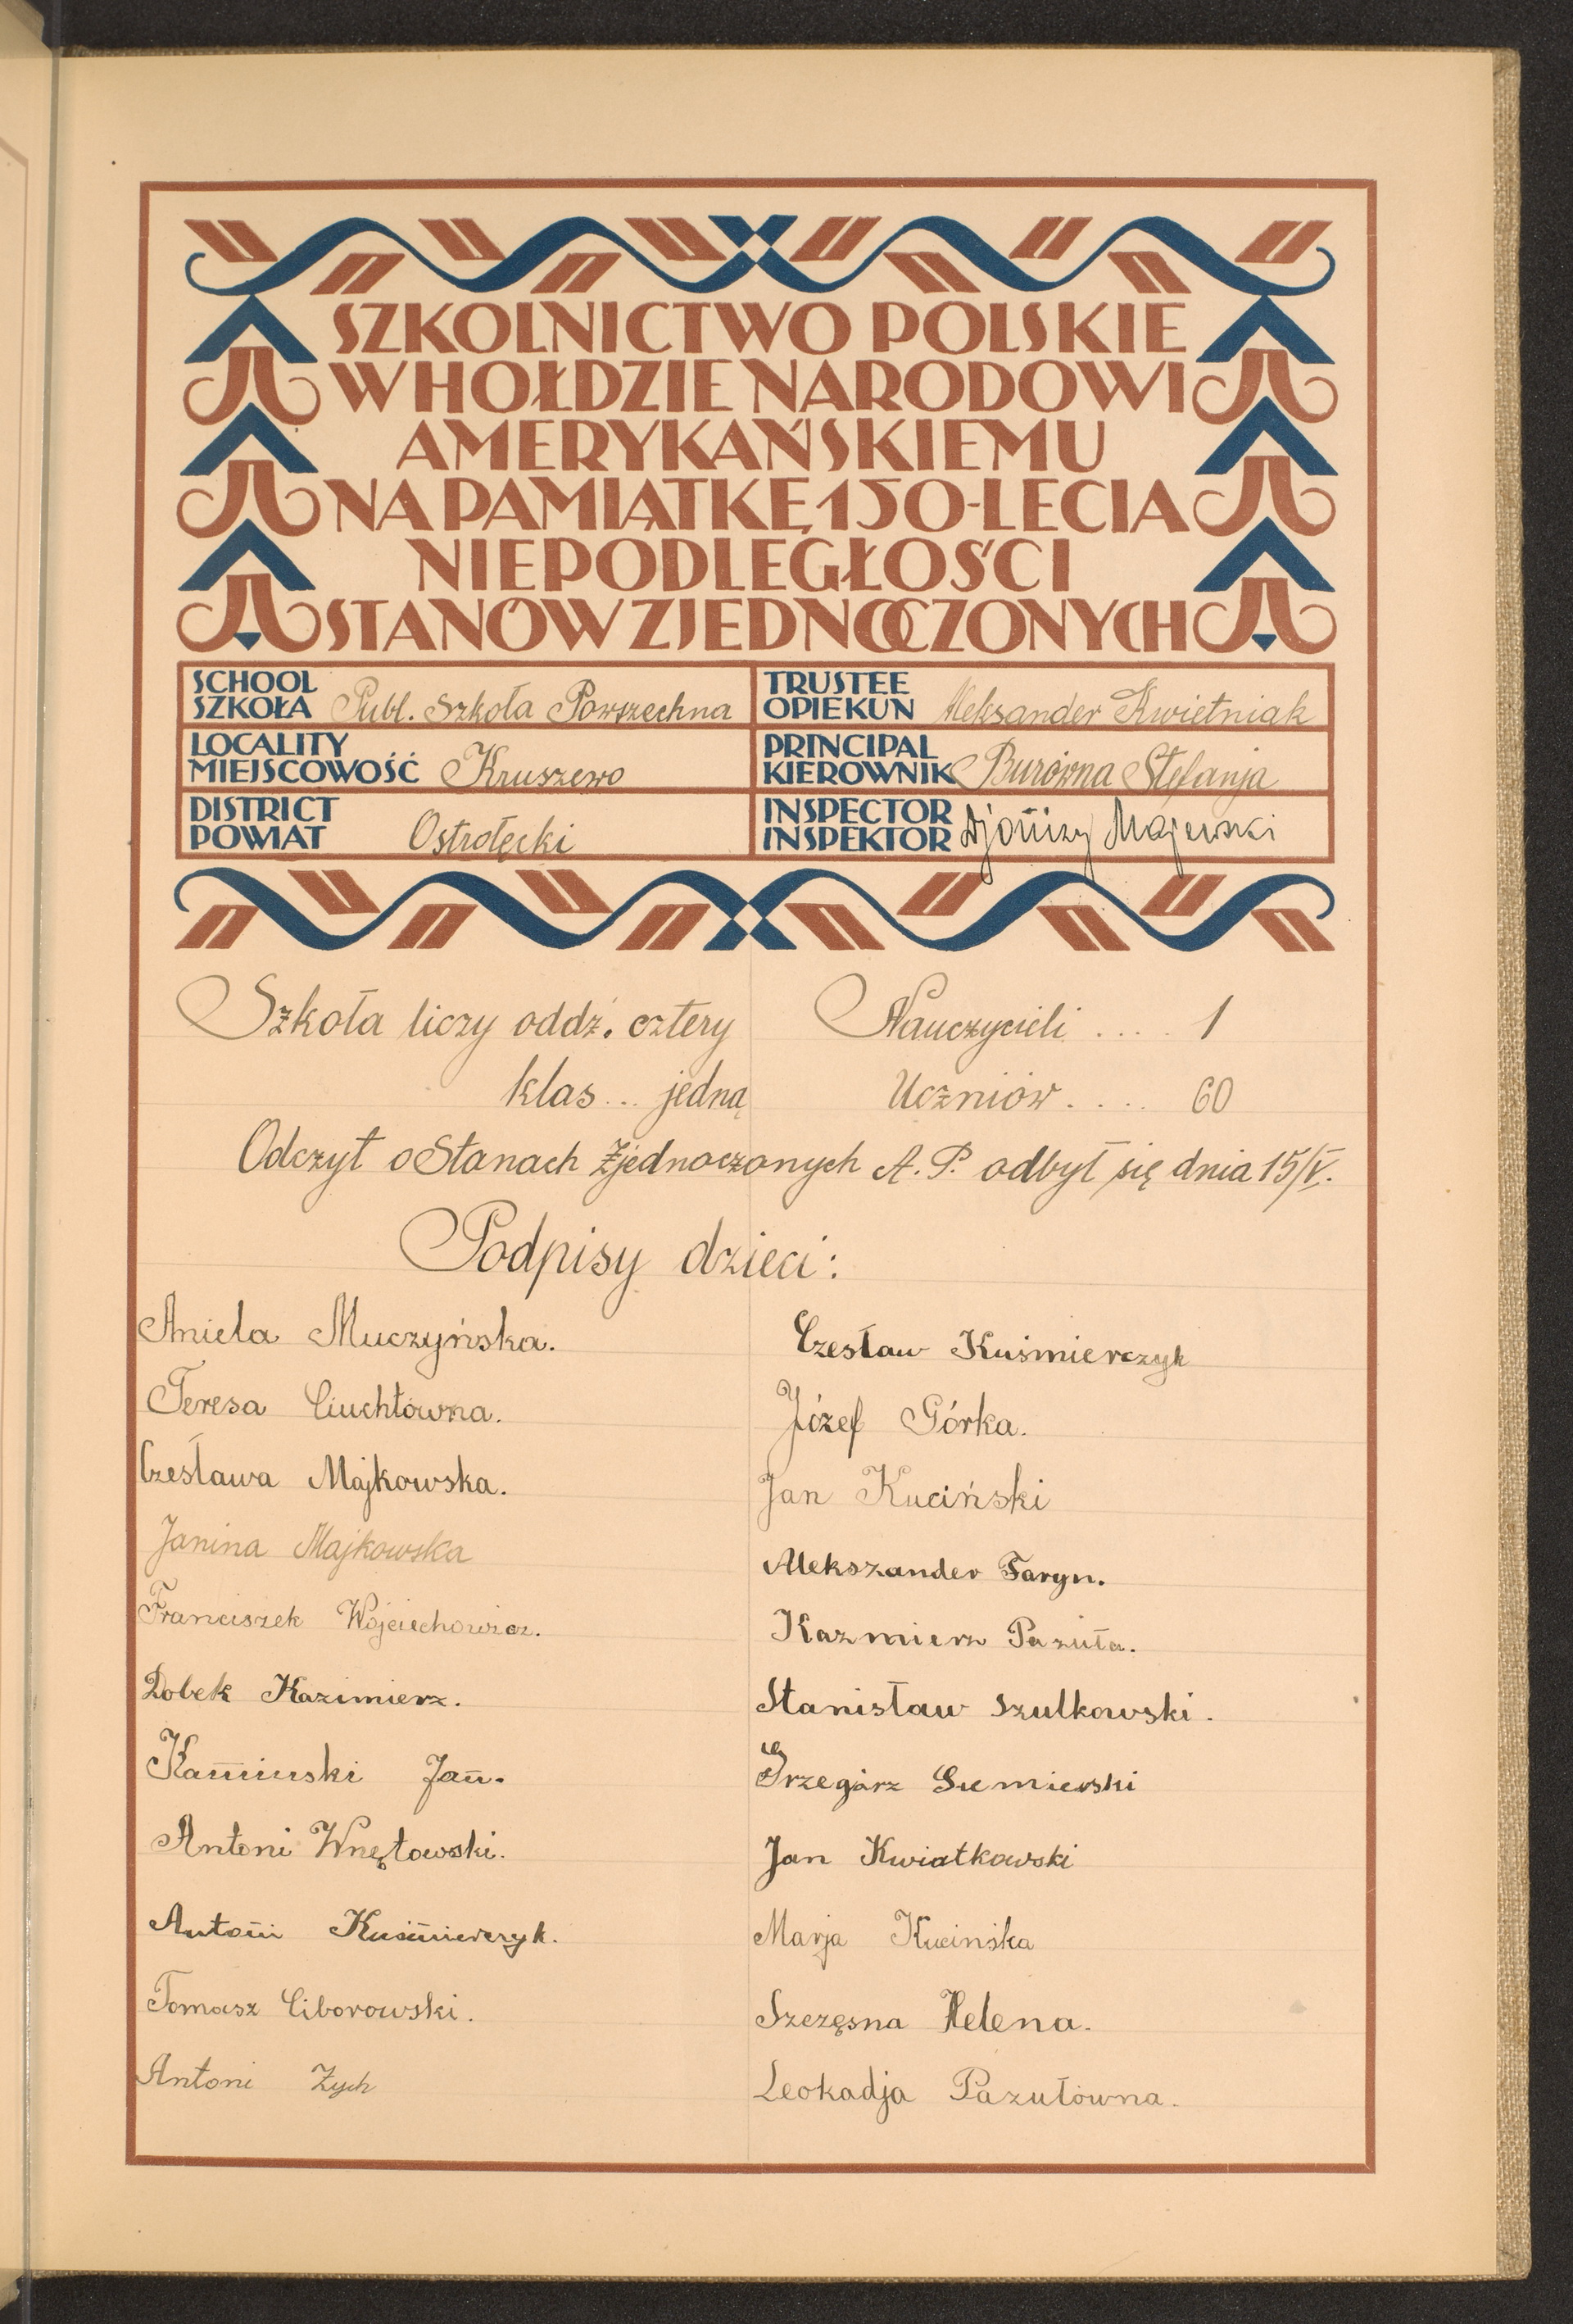 SZKOLNICTWO POLSKIE
W HOŁDZIE NARODOWI
AMERYKAŃSKIEMU
NA PAMIĄTKĘ 150-LECIA
NIEPODLEGŁOŚCI
STANÓW ZJEDNOCZONYCH
SCHOOL
SZKOŁA Publ. Szkoła Powszechna
TRUSTEE
OPIEKUN Aleksander Kwietniak
LOCALITY
MIEJSCOWOŚĆ Kruszewo
PRINCIPAL
KIEROWNIK Burówna Stefanja
DISTRICT
POWIAT Ostrołęcki
INSPECTOR
INSPEKTOR Djonizy Majewski
Szkoła liczy oddź. cztery Nauczycieli .... 1
klas ... jedną Uczniów .... 60
Odczyt o Stanach Zjednoczonych A. P. odbył się dnia 15/V.
Podpisy dzieci:
Aniela Muczyńska.
Teresa Ciuchtówna.
Czesława Majkowska.
Janina Majkowska
Franciszek Wojciechowicz.
Dobek Kazimierz.
Kamiński Jan.
Antoni Wnętowski.
Antoni Kuśmierczyk.
Tomasz Ciborowski.
Antoni Zych
Czesław Kuśmierczyk
Józef Górka.
Jan Kuciński
Alekszander Faryn.
Kazmierz Pazuła.
Stanisław Szulkowski.
Grzegórz
Jan Kwiatkowski
Marja Kucińska
Szczęsna Helena.
Leokadja Pazułówna.